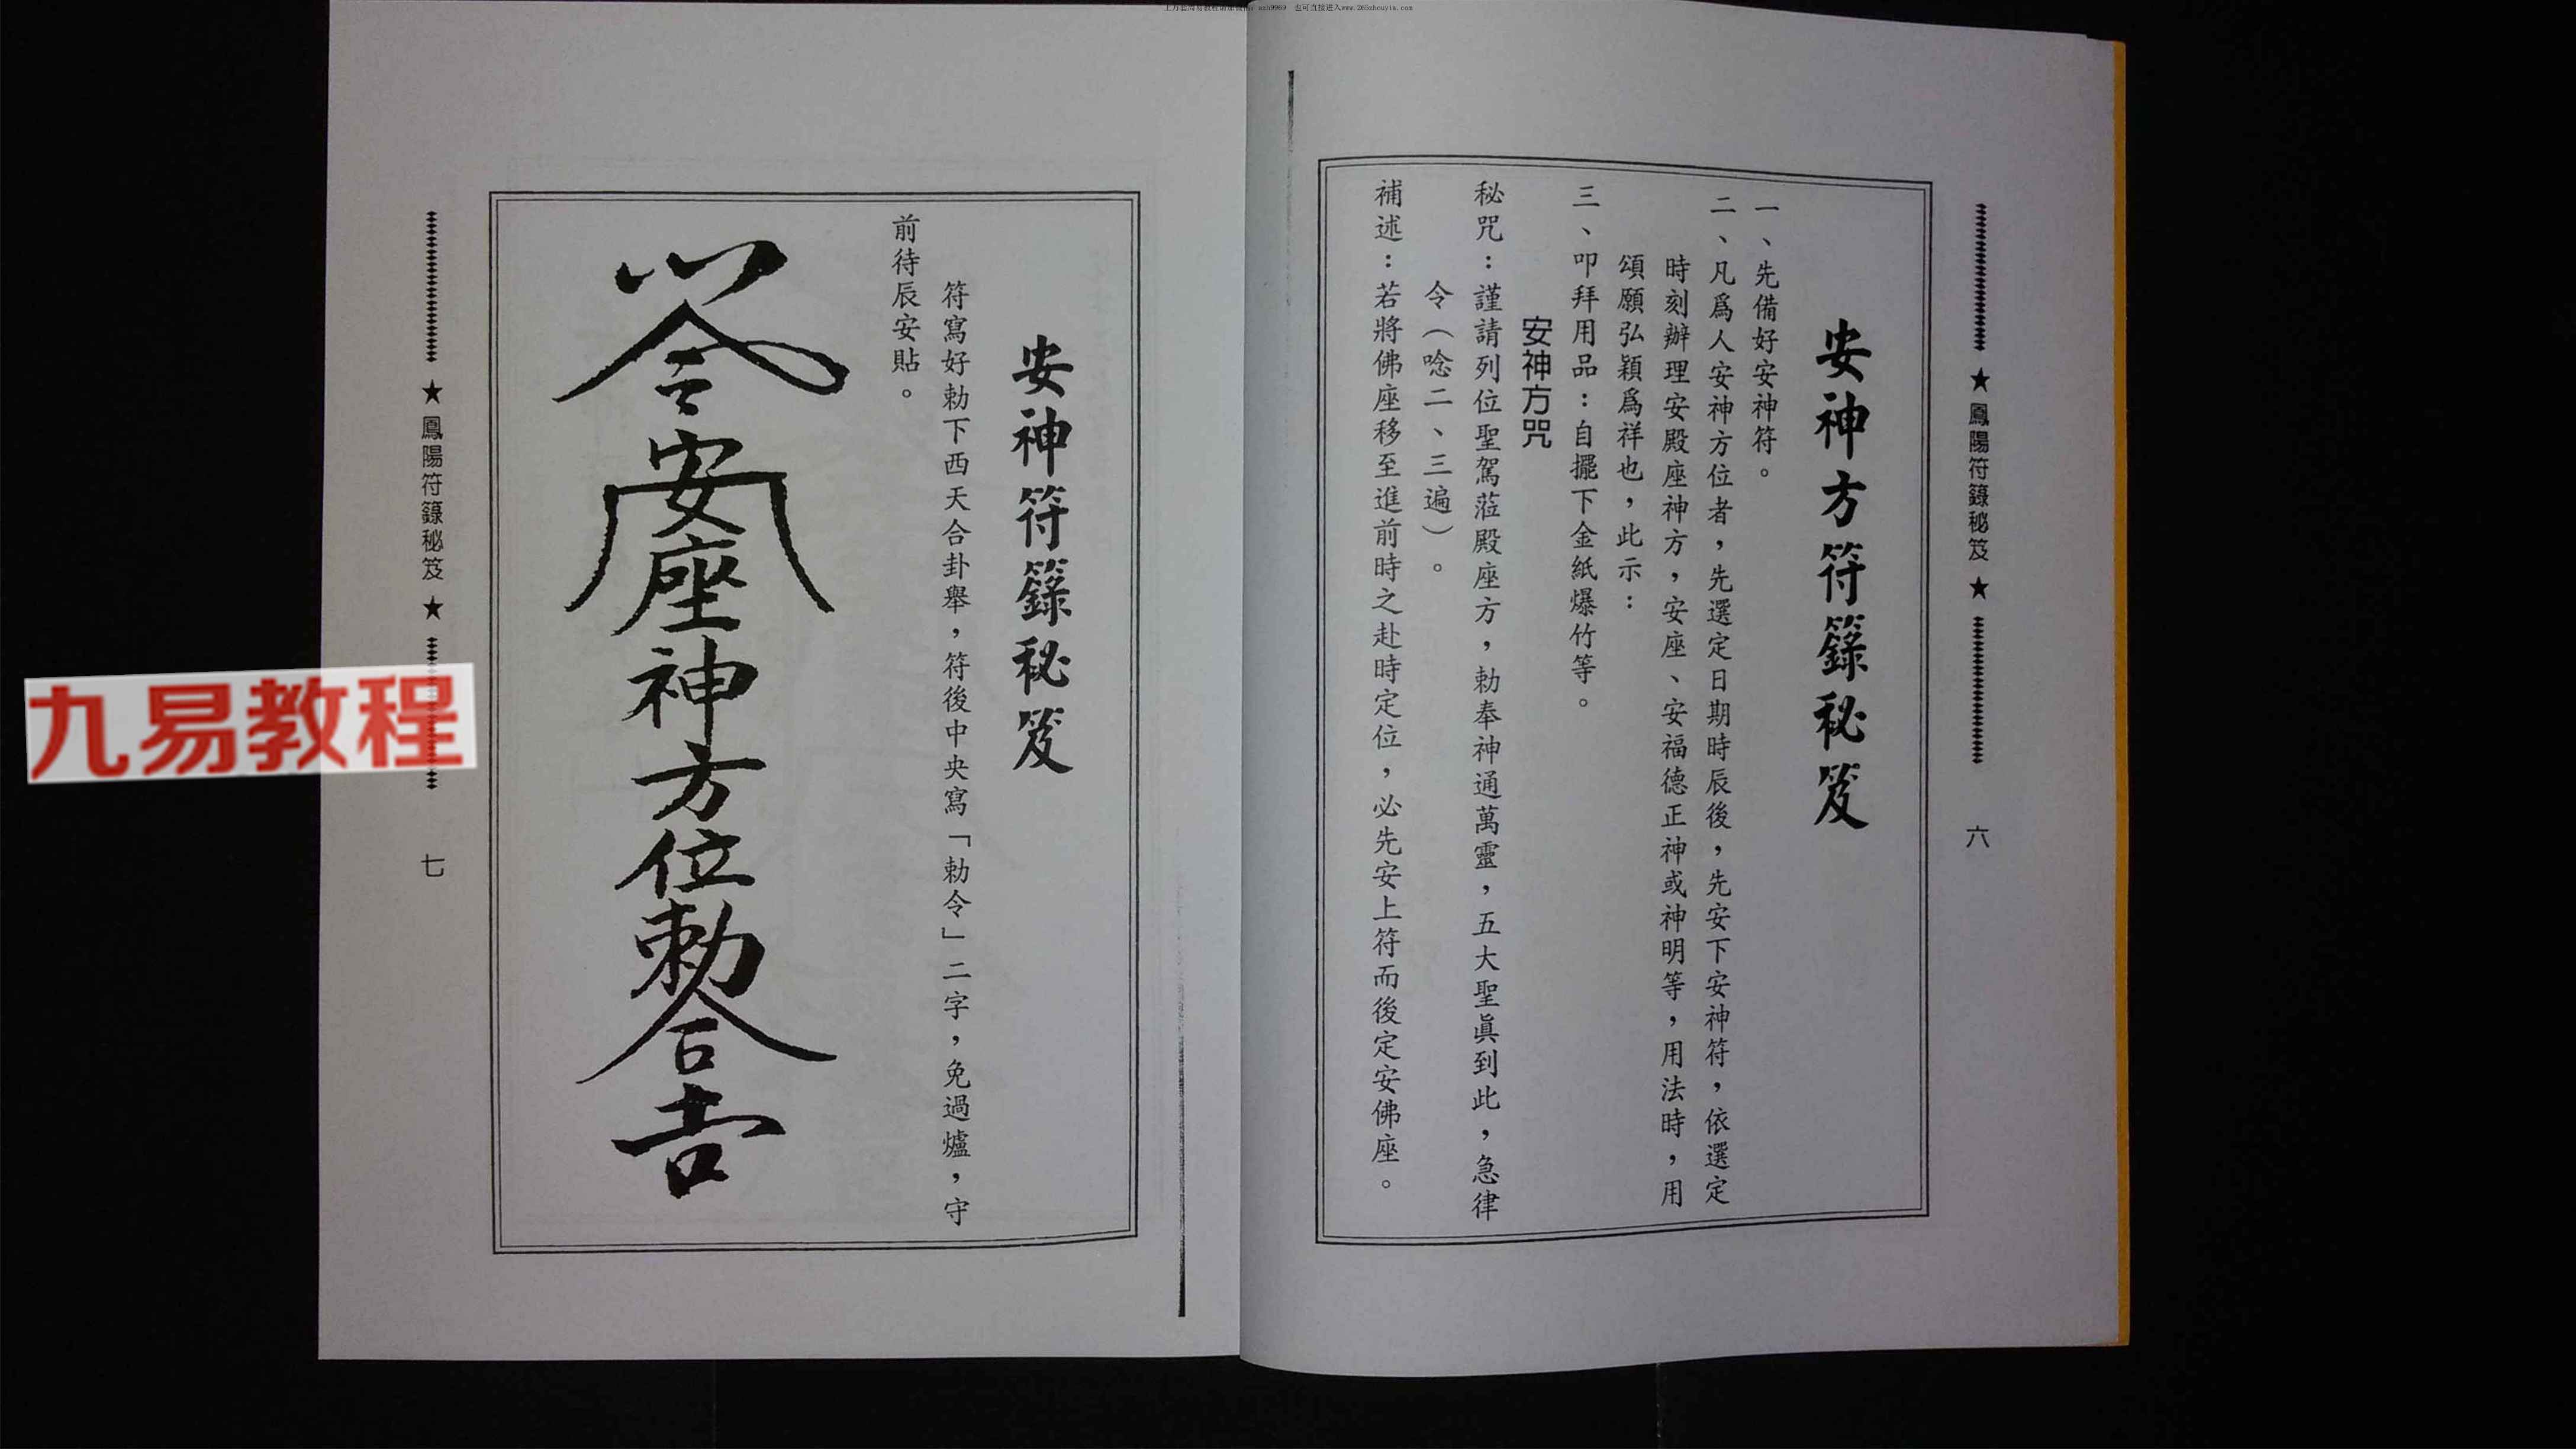 也可直接进入www.265zhouyiw.com
★鳳陽符籙秘笈★
六
安神方符籙秘笈
一、先備好安神符。
二、凡爲人安神方位者，先選定日期時辰後，先安下安神符，依選定
時刻辦理安殿座神方，安座、安福德正神或神明等，用法時，用
頌願弘穎爲祥也，此示：
三、叩拜用品：自擺下金紙爆竹等。
安神方咒
秘咒：謹請列位聖駕蒞殿座方，勅奉神通萬靈，五大聖眞到此，急律
令（唸二、三遍）。
補述：若將佛座移至進前時之赴時定位，必先安上符而後定安佛座。
安神符籙秘笈
符寫好勅下西天合卦舉，符後中央寫「勅令」二字，免過爐，守
前待辰安貼。
安座神方位勅合吉
★鳳陽符籙秘笈★
七
九易教程